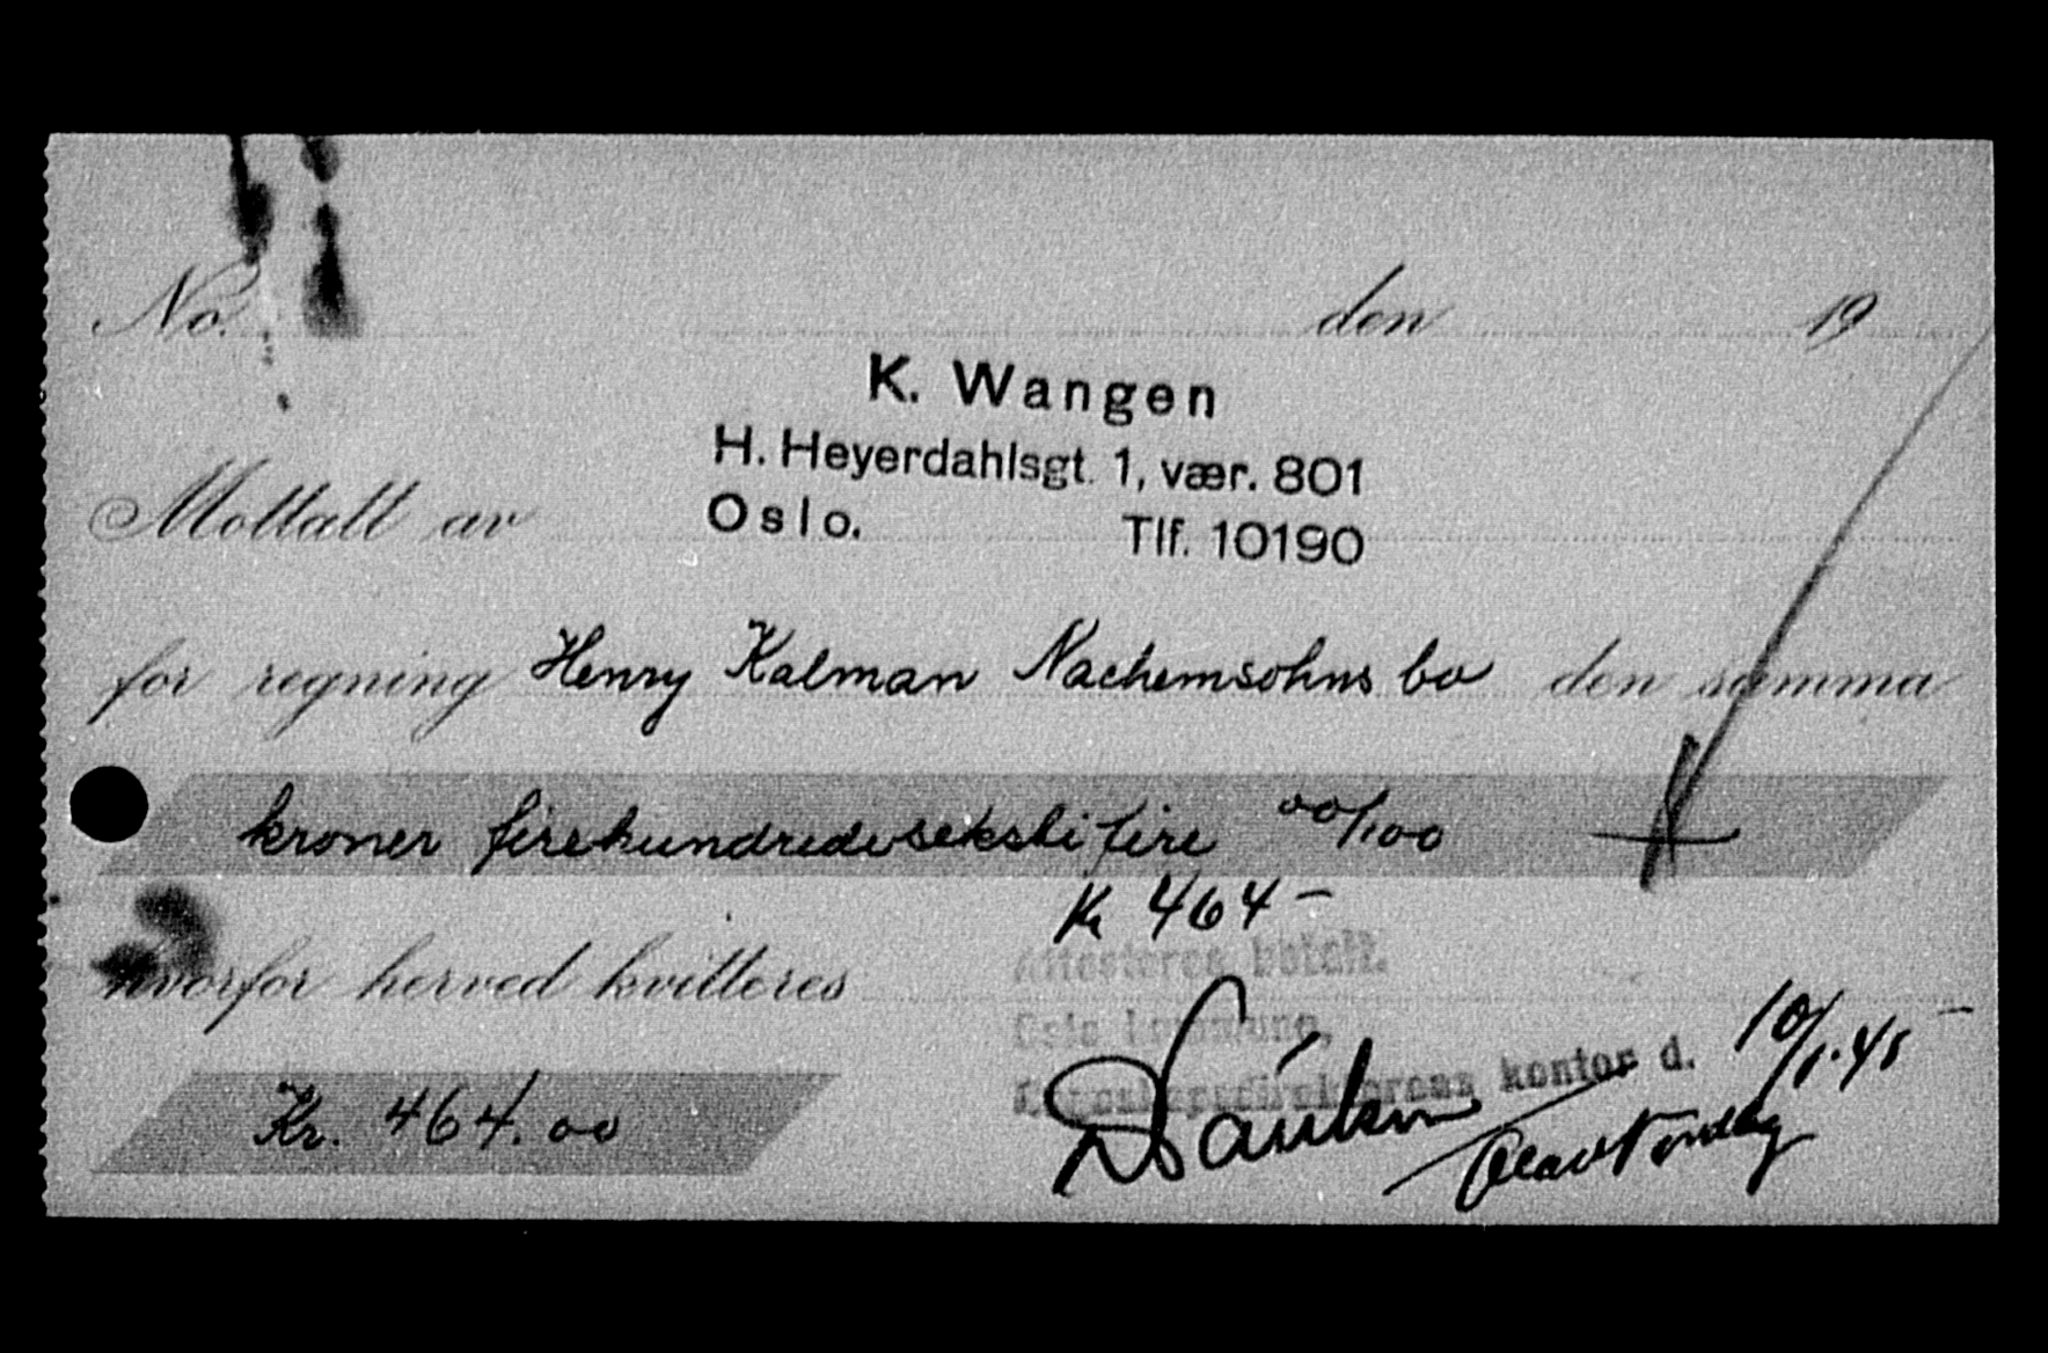 No. den 19
K. Wangen
H. Heyerdahlsgt. 1, vær. 801
Oslo. Tlf. 10190
Mottatt av
for regning Henry Kalman Nachemsohns bo den summa
kroner firehundredeseksti fire 00/100
K 464 -
hvorfor herved kvitteres
Attesteres betalt.
Oslo kommune,
kontor d. 10/1.45
Kr. 464.00